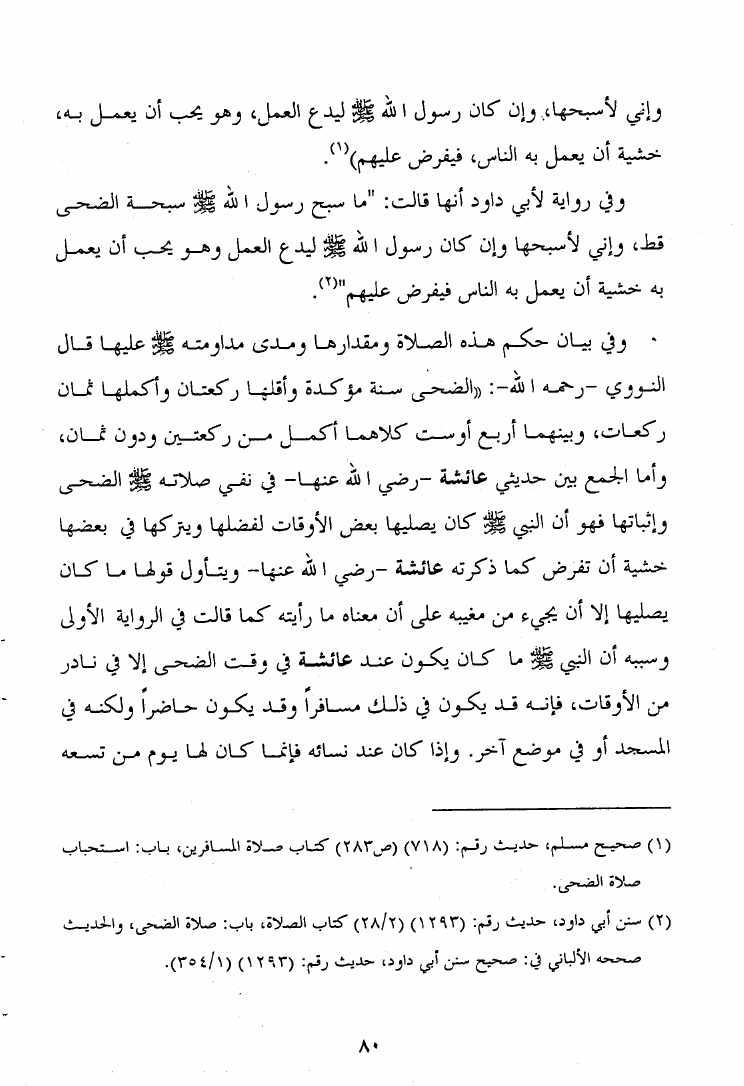 وإني لأسبحها، وإن كان رسول الله ﷺ ليدع العمل، وهو يحب أن يعمل به،
خشية أن يعمل به الناس، فيفرض عليهم)(١).
وفي رواية لأبي داود أنها قالت: "ما سبح رسول الله ﷺ سبحة الضحى
قط، وإني لأسبحها وإن كان رسول الله ﷺ ليدع العمل وهو يحب أن يعمل
به خشية أن يعمل به الناس فيفرض عليهم"(٢).
وفي بيان حكم هذه الصلاة ومقدارها ومدى مداومته ﷺ عليها قال
النووي -رحمه الله-: «الضحى سنة مؤكدة وأقلها ركعتان وأكملها ثمان
ركعات، وبينهما أربع أوست كلاهما أكمل من ركعتين ودون ثمان،
وأما الجمع بين حديثي عائشة -رضي الله عنها- في نفي صلاته ﷺ الضحى
وإثباتها فهو أن النبي ﷺ كان يصليها بعض الأوقات لفضلها ويتركها في بعضها
خشية أن تفرض كما ذكرته عائشة -رضي الله عنها- ويتأول قولها ما كان
يصليها إلا أن يجيء من مغيبه على أن معناه ما رأيته كما قالت في الرواية الأولى
وسببه أن النبي ﷺ ما كان يكون عند عائشة في وقت الضحى إلا في نادر
من الأوقات، فإنه قد يكون في ذلك مسافراً وقد يكون حاضراً ولكنه في
المسجد أو في موضع آخر. وإذا كان عند نسائه فإنما كان لها يوم من تسعه
(١) صحيح مسلم، حديث رقم: (٧١٨) (ص٢٨٣) كتاب صلاة المسافرين، باب: استحباب
صلاة الضحى.
(٢) سنن أبي داود، حديث رقم: (١٢٩٣) (٢٨/٢) كتاب الصلاة، باب: صلاة الضحى، والحديث
صححه الألباني في: صحيح سنن أبي داود، حديث رقم: (١٢٩٣) (٣٥٤/١).
٨٠